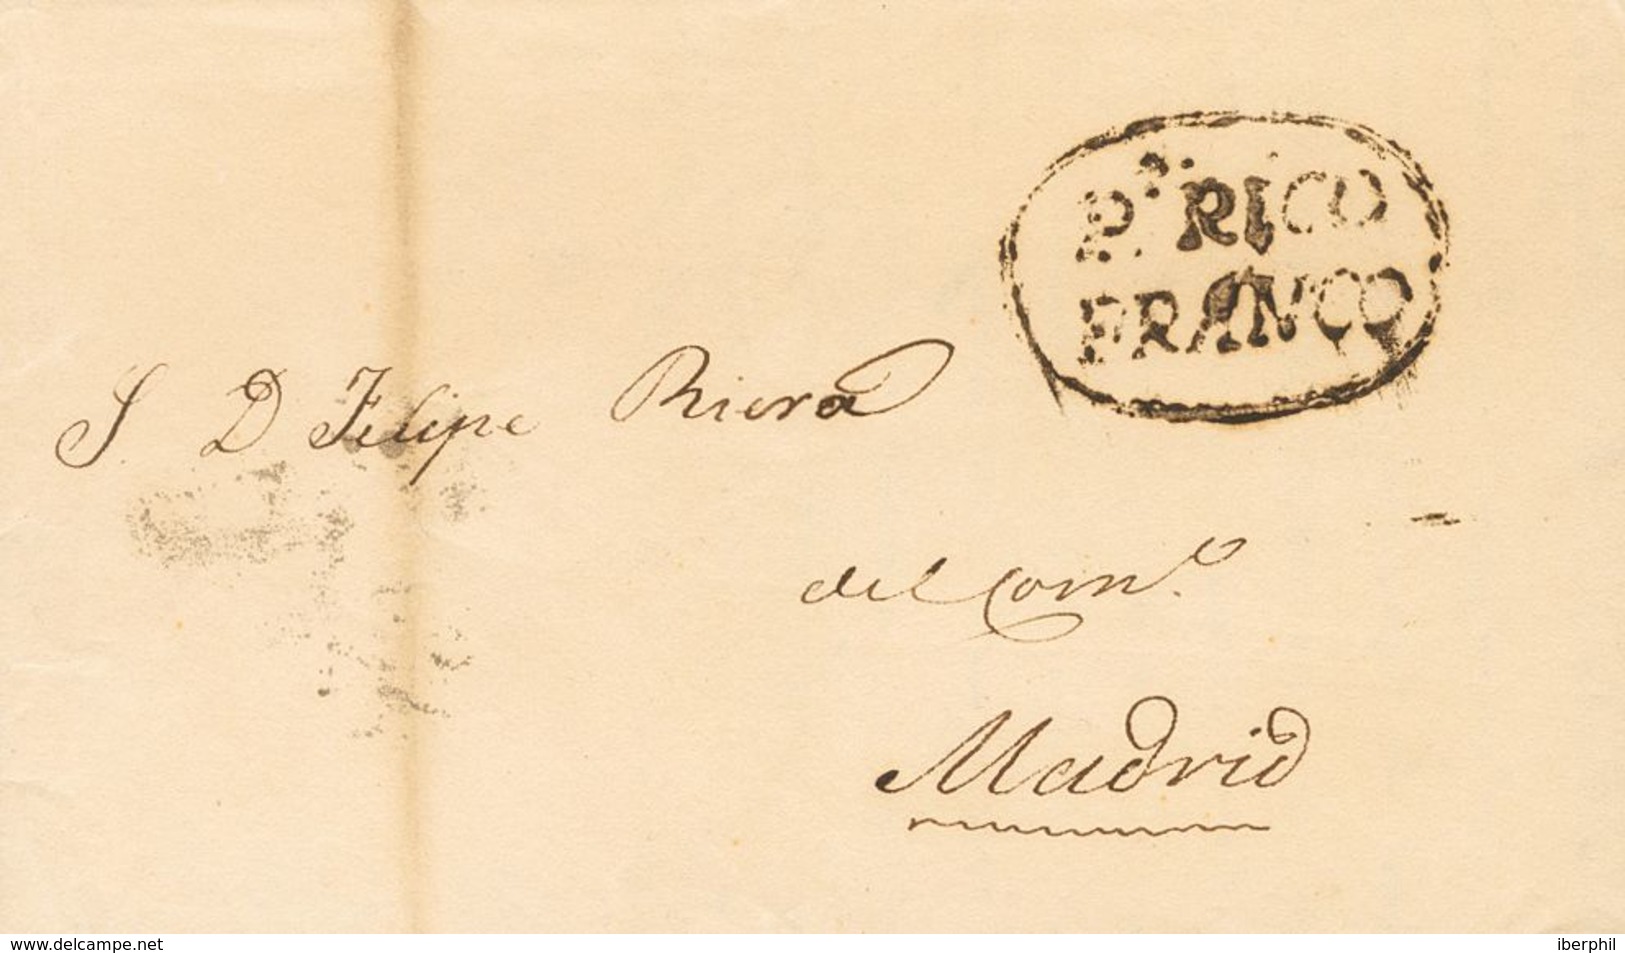 Pto RICO
FRANCO
S. D Felipe Riera
del Com.o
Madrid
www.delcampe.net
iberphil